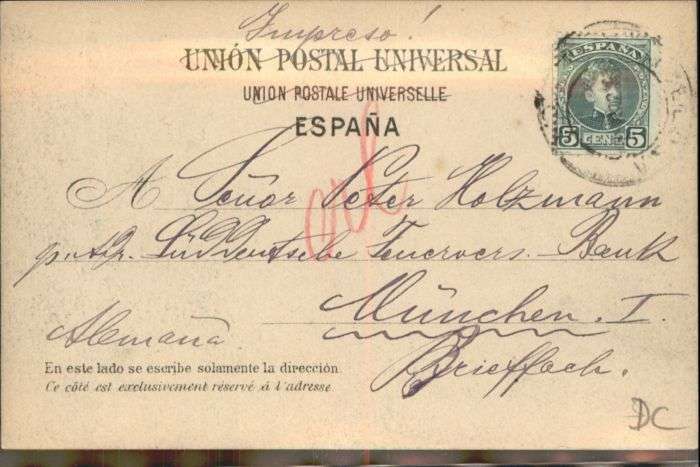 Impreso!
UNIÓN POSTAL UNIVERSAL
UNION POSTALE UNIVERSELLE
ESPAÑA
ESPAÑA
5 CENT 5
A Señor Peter Holzmann
Süddeutsche Feuervers. Bank
München. I.
Alemaña
Brieffach.
En este lado se escribe solamente la dirección.
Ce côté est exclusivement réservé à l'adresse.
DC